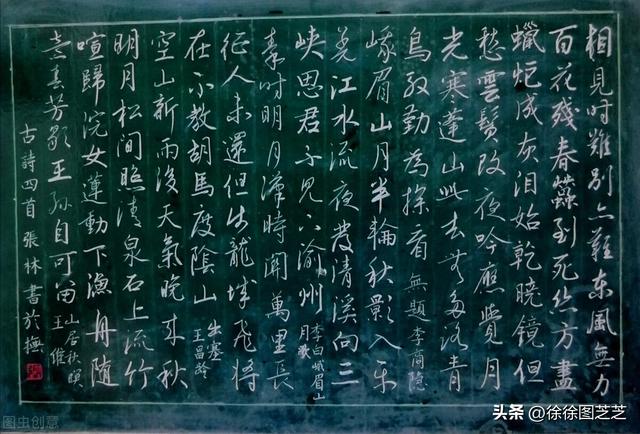 相見时難别亦難東風無力
百花殘春蠶到死丝方盡
蠟炬成灰泪始乾曉鏡但
愁雲鬓改夜吟應覺月
光寒蓬山此去無多路青
鳥殷勤為探看 無題李商隱
峨眉山月半輪秋影入平
羌江水流夜發清溪向三
峡思君不見下渝州 李白峨眉山
月歌
秦时明月漢時關萬里長
征人未還但使龍城飛將
在不教胡馬度陰山 出塞
王昌龄
空山新雨後天氣晚来秋
明月松間照清泉石上流竹
喧歸浣女蓮動下漁舟随
意春芳歇王孫自可留 山居秋暝
王维
古詩四首 張林書於撫
图虫创意
头条 @徐徐图芝芝